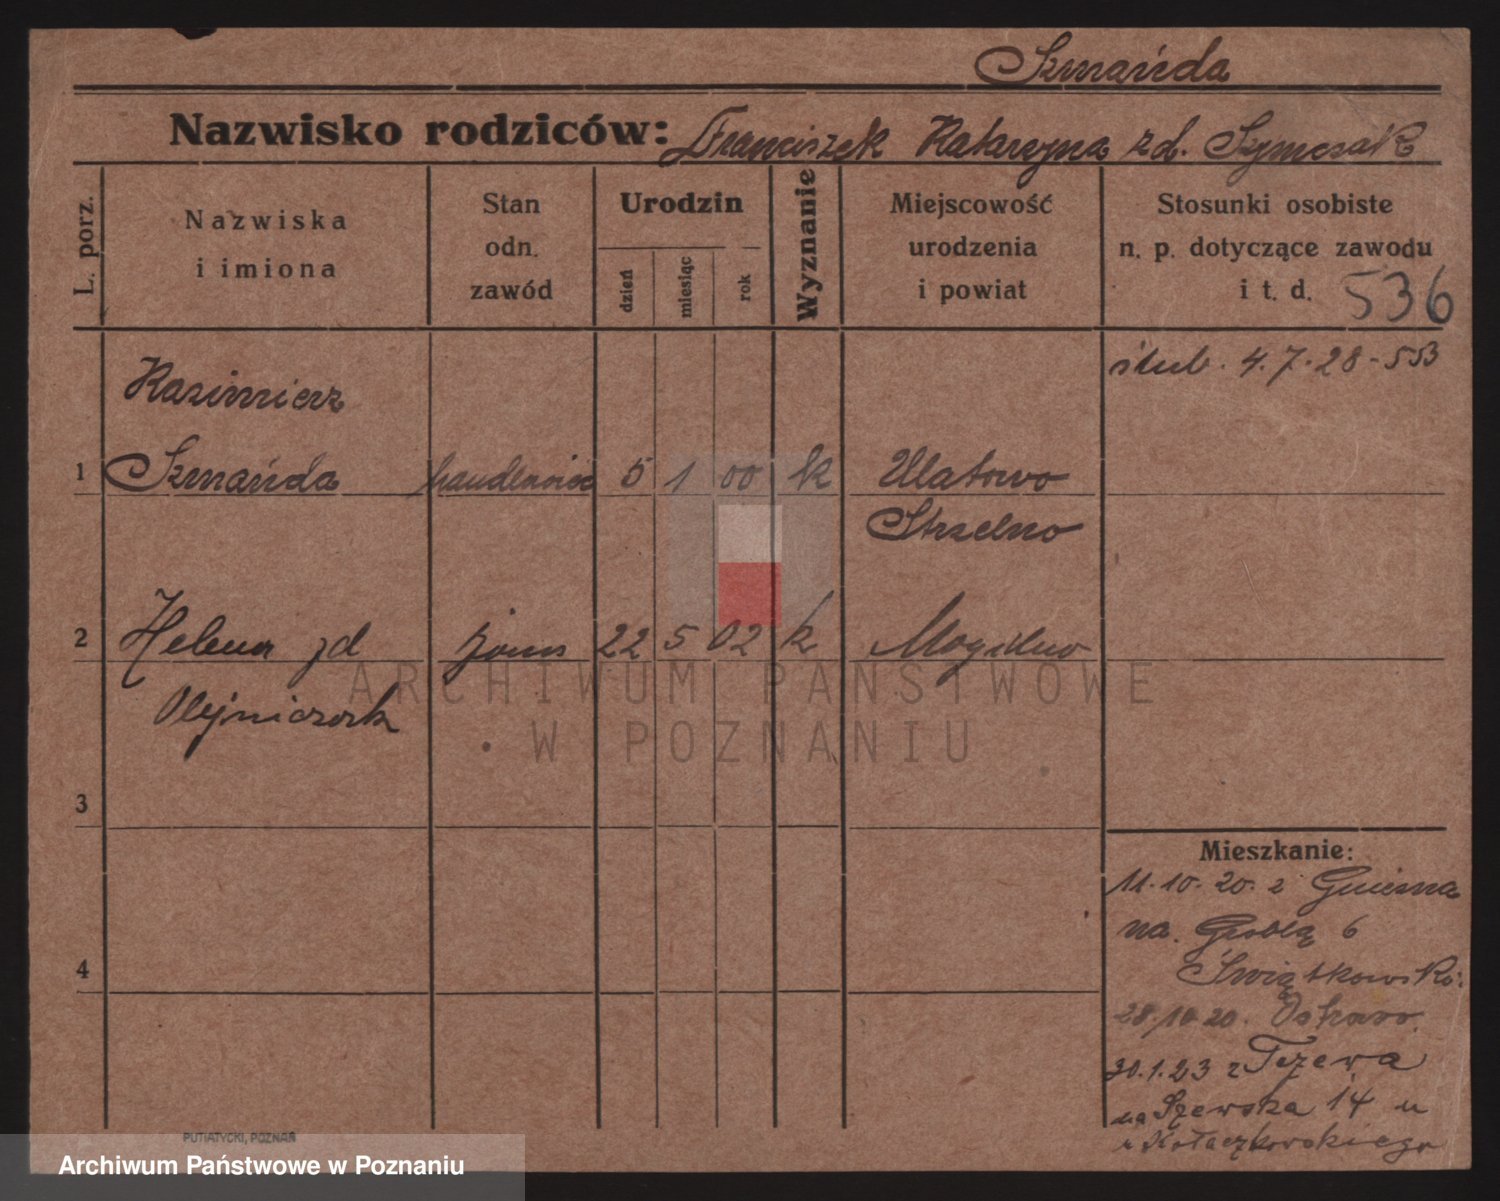 Szmańda
Nazwisko rodziców: Franciszek Katarzyna zd. Szymczak
L. porz.
Nazwiska
i imiona
Stan
odn.
zawód
Urodzin
dzień
miesiąc
rok
Wyznanie
Miejscowość
urodzenia
i powiat
Stosunki osobiste
n. p. dotyczące zawodu
i t. d. 536
ślub. 4.7.28-553
Kazimierz
1 Szmańda handlowiec 5 1 00 k Ulatowo
Strzelno
2 Helena zd żona 22 5 02 k Mogilno
Olejniczak
3
4
Mieszkanie:
11.10.20. z Gniezna
na. Groblą 6
Świątkowski
28.10.20. Ostrowo
30.1.23 z Tczewa
na Szewska 14 u
Kołaczkowskiego
ARCHIWUM PAŃSTWOWE
W POZNANIU
PUTIATYCKI, POZNAŃ
Archiwum Państwowe w Poznaniu